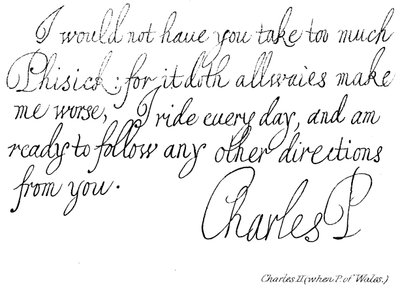 I would not haue you take too much
Phisick: for it doth allwaies make
me worse, I ride euery day, and am
ready to follow any other directions
from you.
Charles P
Charles II (when P. of Wales.)